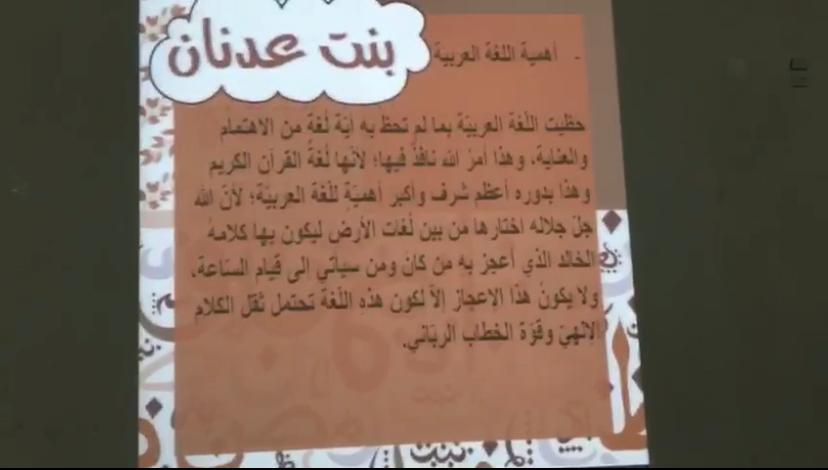 بنت عدنان
- أهمية اللغة العربية
حظيت اللّغة العربيّة بما لم تحظ به أيّة لُغةٍ من الاهتمام
والعناية، وهذا أمرُ الله نافذٌ فيها؛ لأنّها لُغةُ القرآن الكريم
وهذا بدوره أعظم شرف وأكبر أهميّةٍ للّغة العربيّة؛ لأنّ الله
جلّ جلاله اختارها من بين لُغات الأرض ليكون بها كلامهُ
الخالد الذي أعجز به من كان ومن سيأتي إلى قيام السّاعة،
ولا يكونُ هذا الإعجاز إلاّ لكون هذهِ اللّغة تحتمل ثقل الكلام
الإلهيّ وقوّة الخطاب الربّاني.